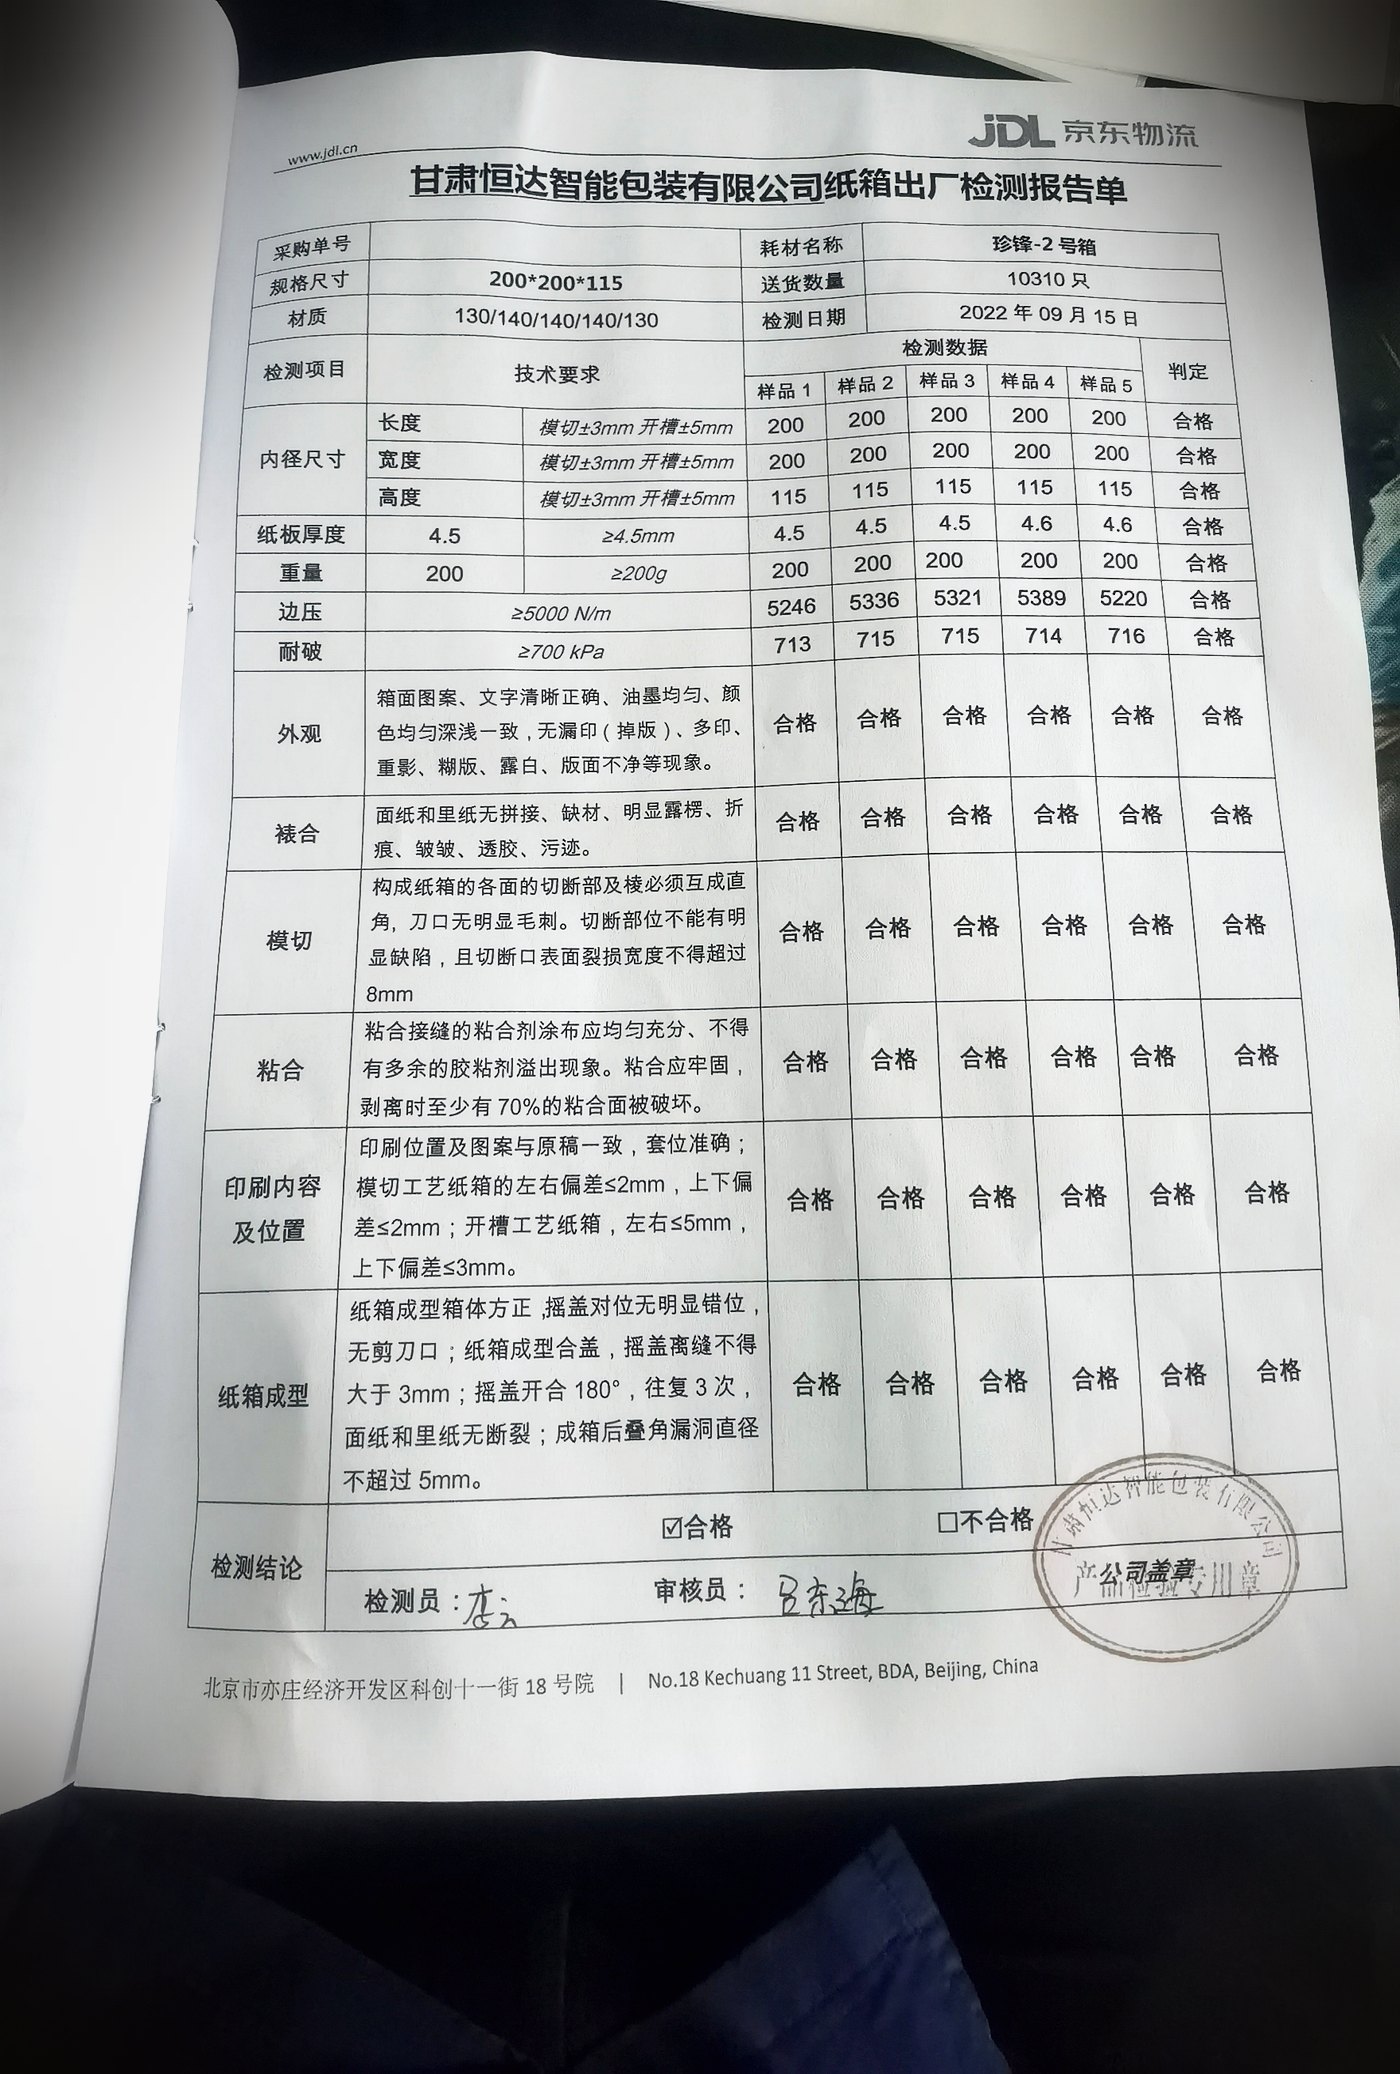 www.jdl.cn
JDL 京东物流
甘肃恒达智能包装有限公司纸箱出厂检测报告单
采购单号 耗材名称 珍锋-2 号箱
规格尺寸 200*200*115 送货数量 10310 只
材质 130/140/140/140/130 检测日期 2022 年 09 月 15 日
检测项目 技术要求 检测数据 判定
样品 1 样品 2 样品 3 样品 4 样品 5
内径尺寸
长度 模切±3mm 开槽±5mm 200 200 200 200 200 合格
宽度 模切±3mm 开槽±5mm 200 200 200 200 200 合格
高度 模切±3mm 开槽±5mm 115 115 115 115 115 合格
纸板厚度 4.5 ≥4.5mm 4.5 4.5 4.5 4.6 4.6 合格
重量 200 ≥200g 200 200 200 200 200 合格
边压 ≥5000 N/m 5246 5336 5321 5389 5220 合格
耐破 ≥700 kPa 713 715 715 714 716 合格
外观
箱面图案、文字清晰正确、油墨均匀、颜
色均匀深浅一致，无漏印（掉版）、多印、
重影、糊版、露白、版面不净等现象。
合格 合格 合格 合格 合格 合格
裱合
面纸和里纸无拼接、缺材、明显露楞、折
痕、皱皱、透胶、污迹。
合格 合格 合格 合格 合格 合格
模切
构成纸箱的各面的切断部及棱必须互成直
角, 刀口无明显毛刺。切断部位不能有明
显缺陷，且切断口表面裂损宽度不得超过
8mm
合格 合格 合格 合格 合格 合格
粘合
粘合接缝的粘合剂涂布应均匀充分、不得
有多余的胶粘剂溢出现象。粘合应牢固，
剥离时至少有 70%的粘合面被破坏。
合格 合格 合格 合格 合格 合格
印刷内容
及位置
印刷位置及图案与原稿一致，套位准确；
模切工艺纸箱的左右偏差≤2mm，上下偏
差≤2mm；开槽工艺纸箱，左右≤5mm，
上下偏差≤3mm。
合格 合格 合格 合格 合格 合格
纸箱成型
纸箱成型箱体方正,摇盖对位无明显错位，
无剪刀口；纸箱成型合盖，摇盖离缝不得
大于 3mm；摇盖开合 180°，往复 3 次，
面纸和里纸无断裂；成箱后叠角漏洞直径
不超过 5mm。
合格 合格 合格 合格 合格 合格
检测结论
☑合格 □不合格
检测员： 审核员： 吕东海 公司盖章
甘肃恒达智能包装有限公司
产品检验专用章
北京市亦庄经济开发区科创十一街 18 号院 | No.18 Kechuang 11 Street, BDA, Beijing, China